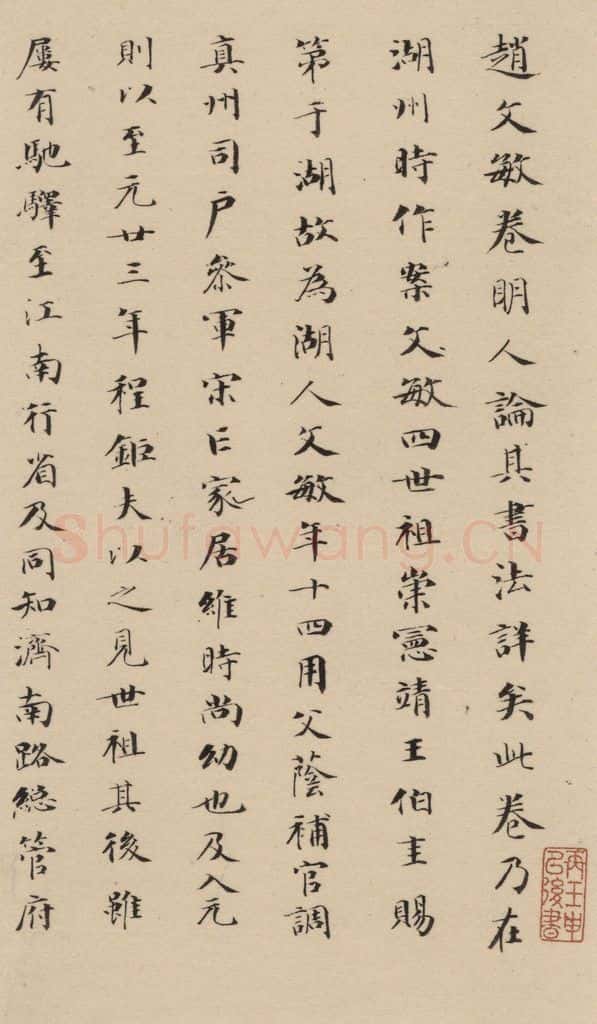 趙文敏卷明人論其書法詳矣此卷乃在
湖州時作案文敏四世祖崇憲靖王伯圭賜
第于湖故為湖人文敏年十四用父蔭補官調
真州司戶參軍宋亡家居維時尚幼也及入元
則以至元廿三年程鉅夫以之見世祖其後雖
屢有馳驛至江南行省及同知濟南路總管府
丙壬申
己後書
Shufawang.CN